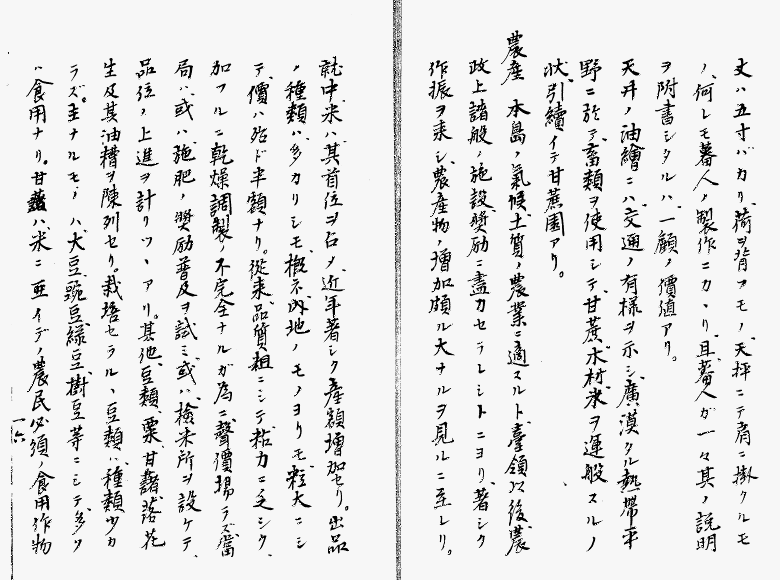 丈ハ五寸バカリ荷ヲ背フモノ天秤ニテ肩ニ掛クルモ
ノ、何レモ蕃人ノ製作ニカヽリ且蕃人ガ一々其ノ説明
ヲ附書シタルハ一顧ノ價値アリ。
天井ノ油繪ニハ交通ノ有樣ヲ示シ廣漠タル熱帶平
野ニ於テ畜類ヲ使用シテ甘蔗木材米ヲ運般スルノ
狀、引續イテ甘蔗園アリ。
農産 本島ノ氣候土質ノ農業ニ適スルト臺領以後農
政上諸般ノ施設奬励ニ盡力セラレシトニヨリ著シク
作振ヲ来シ、農産物ノ増加頗ル大ナルヲ見ルニ至レリ。
就中米ハ其首位ヲ占メ近年著シク産額増加セリ。出品
ノ種類ハ多カリシモ概ネ内地ノモノヨリモ粒大ニシ
テ價ハ殆ド半額ナリ。從来品質粗ニシテ粘力ニ乏シク、
加フルニ乾燥調製ノ不完全ナルガ為ニ聲價揚ラズ當
局ハ或ハ施肥ノ奬励普及ヲ試ミ或ハ検米所ヲ設ケテ
品位ノ上進ヲ計リツヽアリ。其他豆類、粟、甘藷落花
生及其油糟ヲ陳列セリ。栽培セラルヽ豆類ハ種類少カ
ラズ。主ナルモノハ大豆豌豆緑豆樹豆等ニシテ多ク
ハ食用ナリ。甘藷ハ米ニ亜イデノ農民必須ノ食用作物
一六